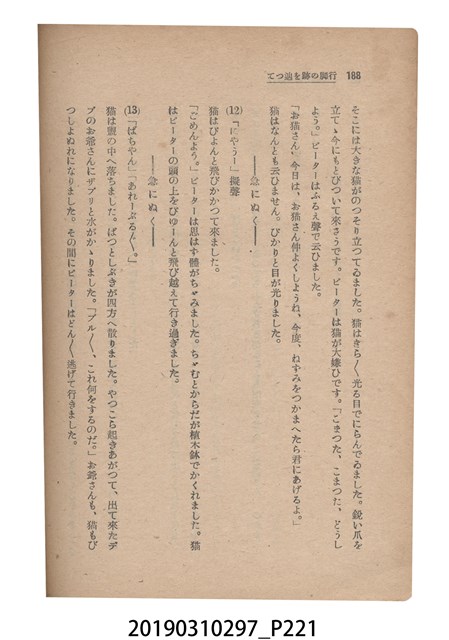 188 行脚の跡を辿つて
そこには大きな猫がのつそり立つてゐました。猫はきら〳〵光る目でにらんでゐました。鋭い爪を
立てゝ今にもとびついて來さうです。ピーターは猫が大嫌ひです。「こまつた、こまつた、どうし
よう。」ピーターはふるえ聲で云ひました。
「お猫さん、今日は、お猫さん仲よくしようね、今度、ねずみをつかまへたら君にあげるよ。」
猫はなんとも云ひません。ぴかりと目が光りました。
――急にぬく――
(12)「にやうー」擬聲
猫はぴよんと飛びかかつて來ました。
「ごめんよう。」ピーターは思はず髄がちゞみました。ちゞむとからだが植木鉢でかくれました。猫
はピーターの頭の上をぴゆーんと飛び越えて行き過ぎました。
――急にぬく――
(13)「ばちやん」「あれーぶる〳〵。」
猫は瓶の中へ落ちました。ぱつとしぶきが四方へ散りました。やつこら起きあがつて、出て來たデ
ブのお爺さんにザブリと水がかゝりました。「ブル〳〵、これ何をするのだ。」お爺さんも、猫もび
つしよぬれになりました。その間にピーターはどん〳〵逃げて行きました。
20190310297_P221